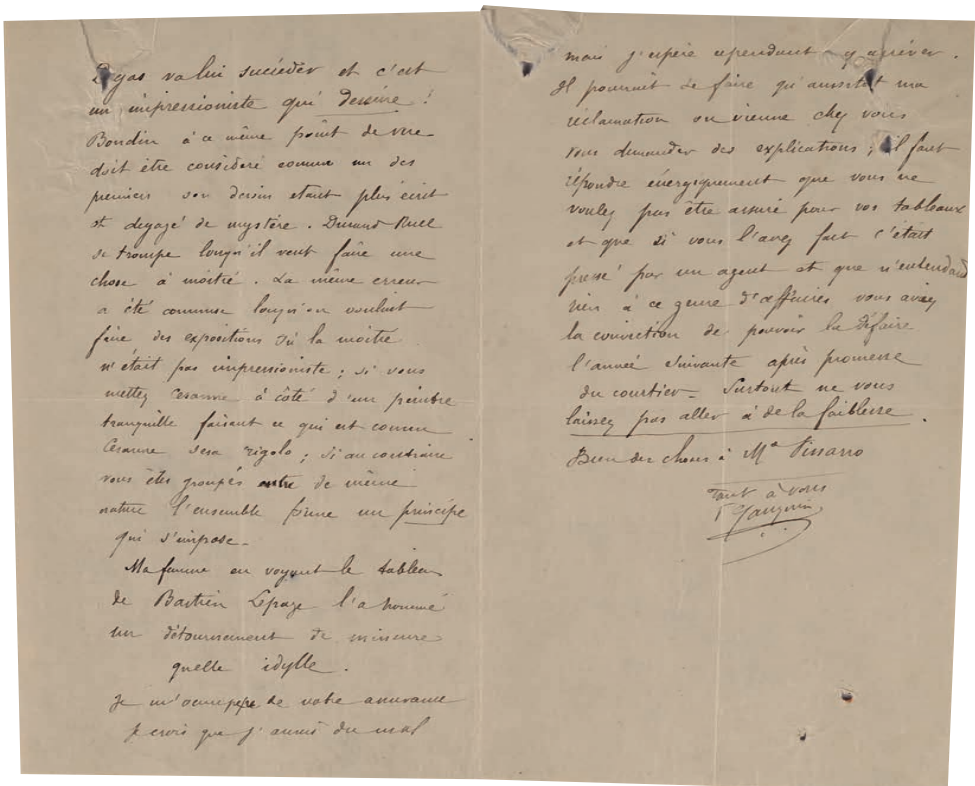 Degas va lui succéder et c'est
un impressioniste qui dessine !
Boudin à ce même point de vue
doit être considéré comme un des
premiers son dessin etant plus écrit
et degagé de mystère. Durand Ruel
se trompe lorsqu'il veut faire une
chose à moitié. La même erreur
a été commise lorsqu'on voulait
faire des expositions où la moitié
n'était pas impressioniste ; si vous
mettez Cesanne à côté d'un peintre
tranquille faisant ce qui est connu
Cesanne sera rigolo ; si au contraire
vous êtes groupés entre de même
nature l'ensemble prime un principe
qui s'impose.
Ma femme en voyant le tableau
de Bastien Lepage l'a nommé
un détournement de mineure
quelle idylle.
Je m'occupe de votre assurance
je crois que j'aurais du mal
mais j'espère cependant y arriver.
Il pourrait se faire qu'aussitôt ma
réclamation on vienne chez vous
vous demander des explications ; il faut
répondre énergiquement que vous ne
voulez pas être assuré pour vos tableaux
et que si vous l'avez fait c'était
pressé par un agent et que n'entendant
rien à ce genre d'affaires vous aviez
la conviction de pouvoir la défaire
l'année suivante après promesse
du courtier. Surtout ne vous
laissez pas aller à de la faiblesse.
Bien des choses à Me Pissarro
Tout à vous
P Gauguin